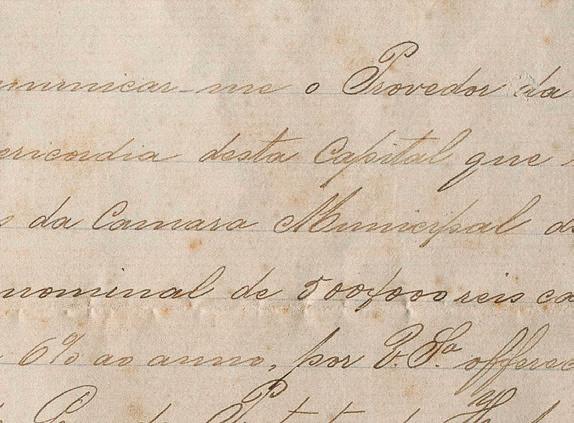 municar-me o Provedor da
ericordia desta Capital que
s da Camara Municipal d
nominal de 500$000 reis ca
6% ao anno, por V. Sa. offerec